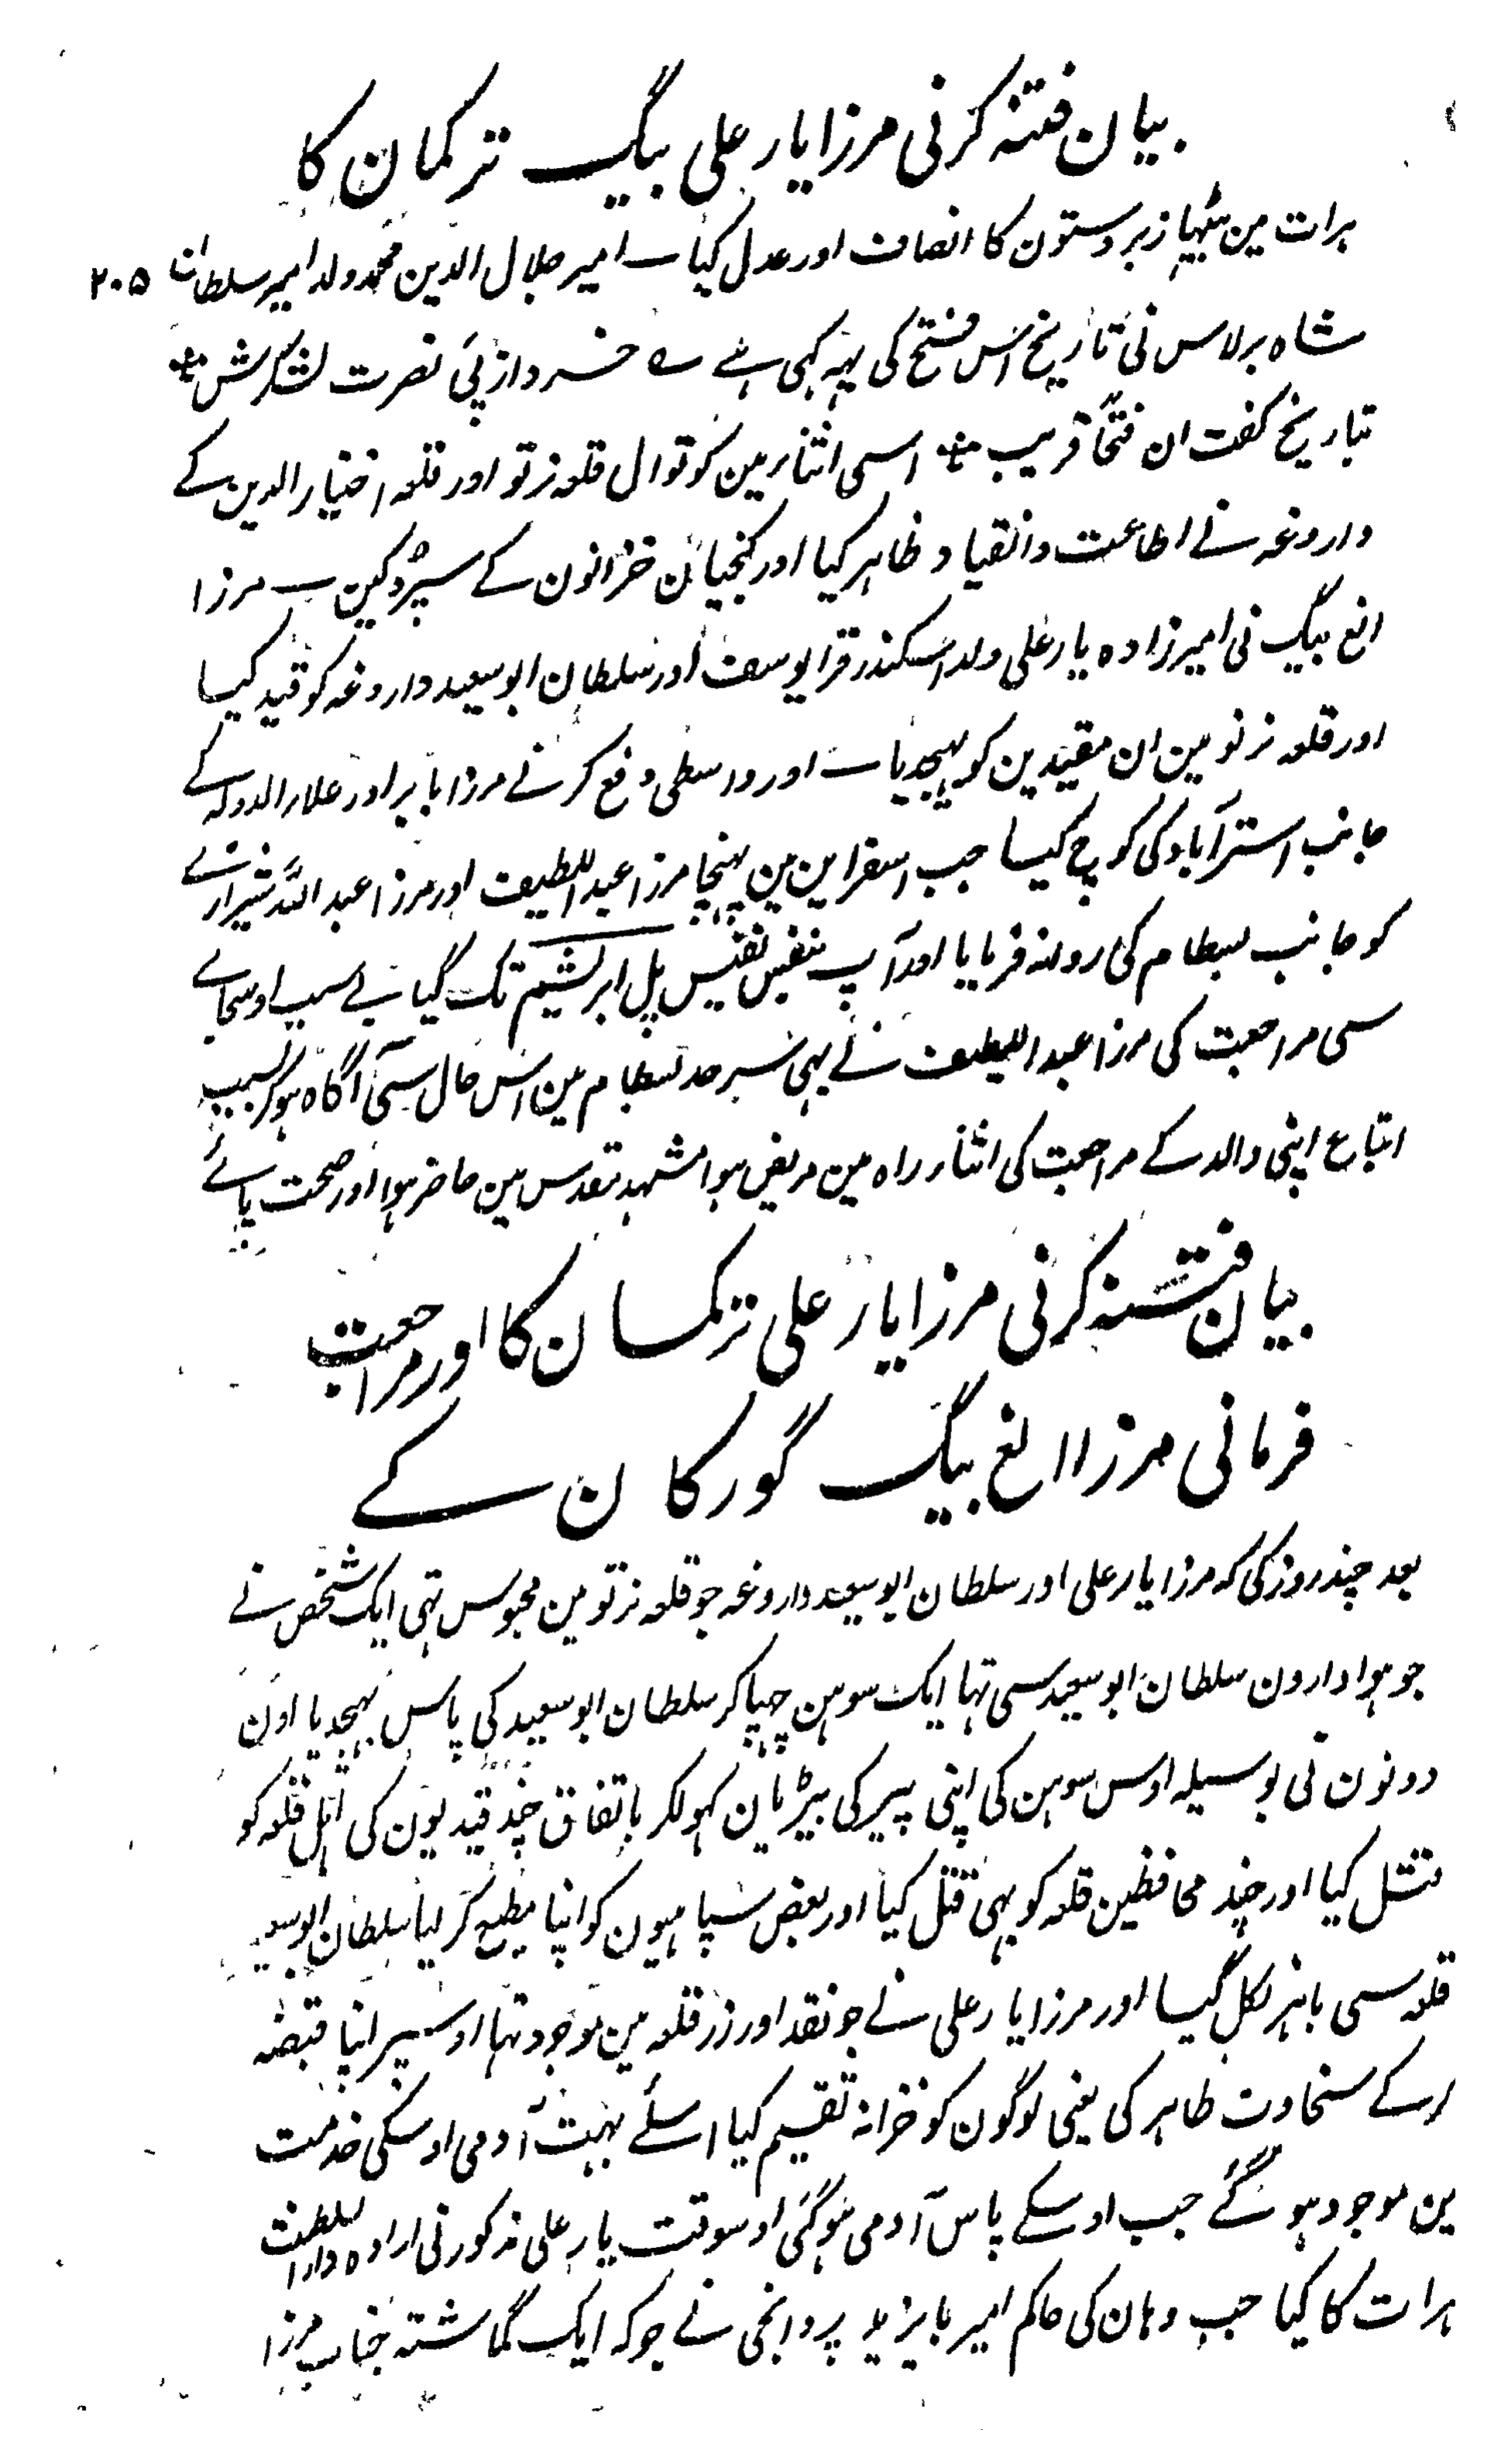 بیان فتنہ کرنی مرزا یار علی بیگ ترکمان کا
ہرات مین بیٹھا زبردستون کا انصاف اور عدل کیا ۔ امیر جلال الدین محمد ولد امیر سلطان ۲۰۵
شاہ برلاس نی تاریخ اس فتح کی یہہ کہی ہے ؎ خسرو از پی نصرت لشکرش
بتاریخ گفت ان فتحًا قریب اسی اثنا مین کوتوال قلعہ نرتو اور قلعہ اختیار الدین کے
داروغہ نے اطاعت و انقیاد ظاہر کیا اور کنجیان خزانون کے سپرد کین ۔ مرزا
الغ بیگ نی امیرزادہ یار علی ولد اسکندر قرا یوسف اور سلطان ابو سعید داروغہ کو قید کیا
اور قلعہ نرتو مین ان مقیدین کو بہیجدیا ۔ اور واسطی دفع کرنے مرزا بابر اور علاء الدولہ کے
جانب استرآباد کی کوچ کیا جب اسفراین مین پہنچا مرزا عبد اللطیف اور مرزا عبد اللہ شیرازے
کو جانب بسطام کی روانہ فرمایا اور آپ بنفس نفیس پل ابریشم تک گیا بے سبب اوسجائے
سی مراجعت کی مرزا عبد اللطیف نے بہی سرحد بسطام مین اس حال سی آگاہ ہوکر بسبب
اتباع اپنی والد کے مراجعت کی اثناء راہ مین مریض ہوا مشہد مقدس مین حاضر ہوا اور صحت پائے
بیان فتنہ کرنی مرزا یار علی ترکمان کا اور مراجعت
فرمانی مرزا الغ بیگ گورکان کے
بعد چند روز کی کہ مرزا یار علی اور سلطان ابو سعید داروغہ جو قلعہ نرتو مین محبوس تہی ایک شخص نے
جو ہوادارون سلطان ابو سعید سی تہا ایک سوہن چہپا کر سلطان ابو سعید کی پاس بہیجدیا اون
دونون نی بوسیلہ اوس سوہن کی اپنی پیر کی بیڑیان کہولکر باتفاق چند قیدیون کی اہل قلعہ کو
قتل کیا اور چند محافظین قلعہ کو بہی قتل کیا اور بعض سپاہیون کو اپنا مطیع کر لیا سلطان ابو سعید
قلعہ سی باہر نکل گیا اور مرزا یار علی نے جو نقد اور زر قلعہ مین موجود تہا اوسپر اپنا قبضہ
کرکے سخاوت ظاہر کی یعنی لوگون کو خزانہ تقسیم کیا اسلئے بہت آدمی اوسکی خدمت
ین موجود ہو گئے جب اوسکے پاس آدمی ہو گئی اوسوقت یار علی مذکور نی ارادہ دار السلطنت
ہرات کا کیا جب وہان کی حاکم امیر بایزید پروانجی نے جو کہ ایک گماشتہ جناب مرزا